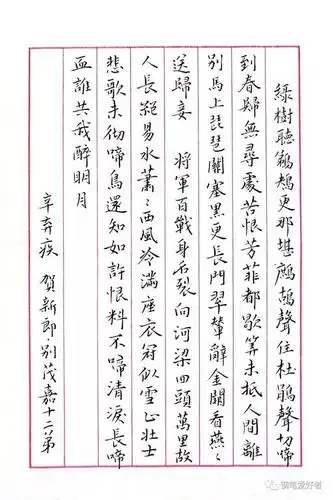 綠樹聽鵜鴂更那堪鷓鴣聲住杜鵑聲切啼
到春歸無尋處苦恨芳菲都歇算未抵人間離
別馬上琵琶關塞黑更長門翠輦辭金闕看燕〻
送歸妾　將軍百戰身名裂向河梁回頭萬里故
人長絕易水蕭〻西風冷滿座衣冠似雪正壯士
悲歌未徹啼鳥還知如許恨料不啼清淚長啼
血誰共我醉明月
辛弃疾　賀新郎·別茂嘉十二弟
钢笔爱好者